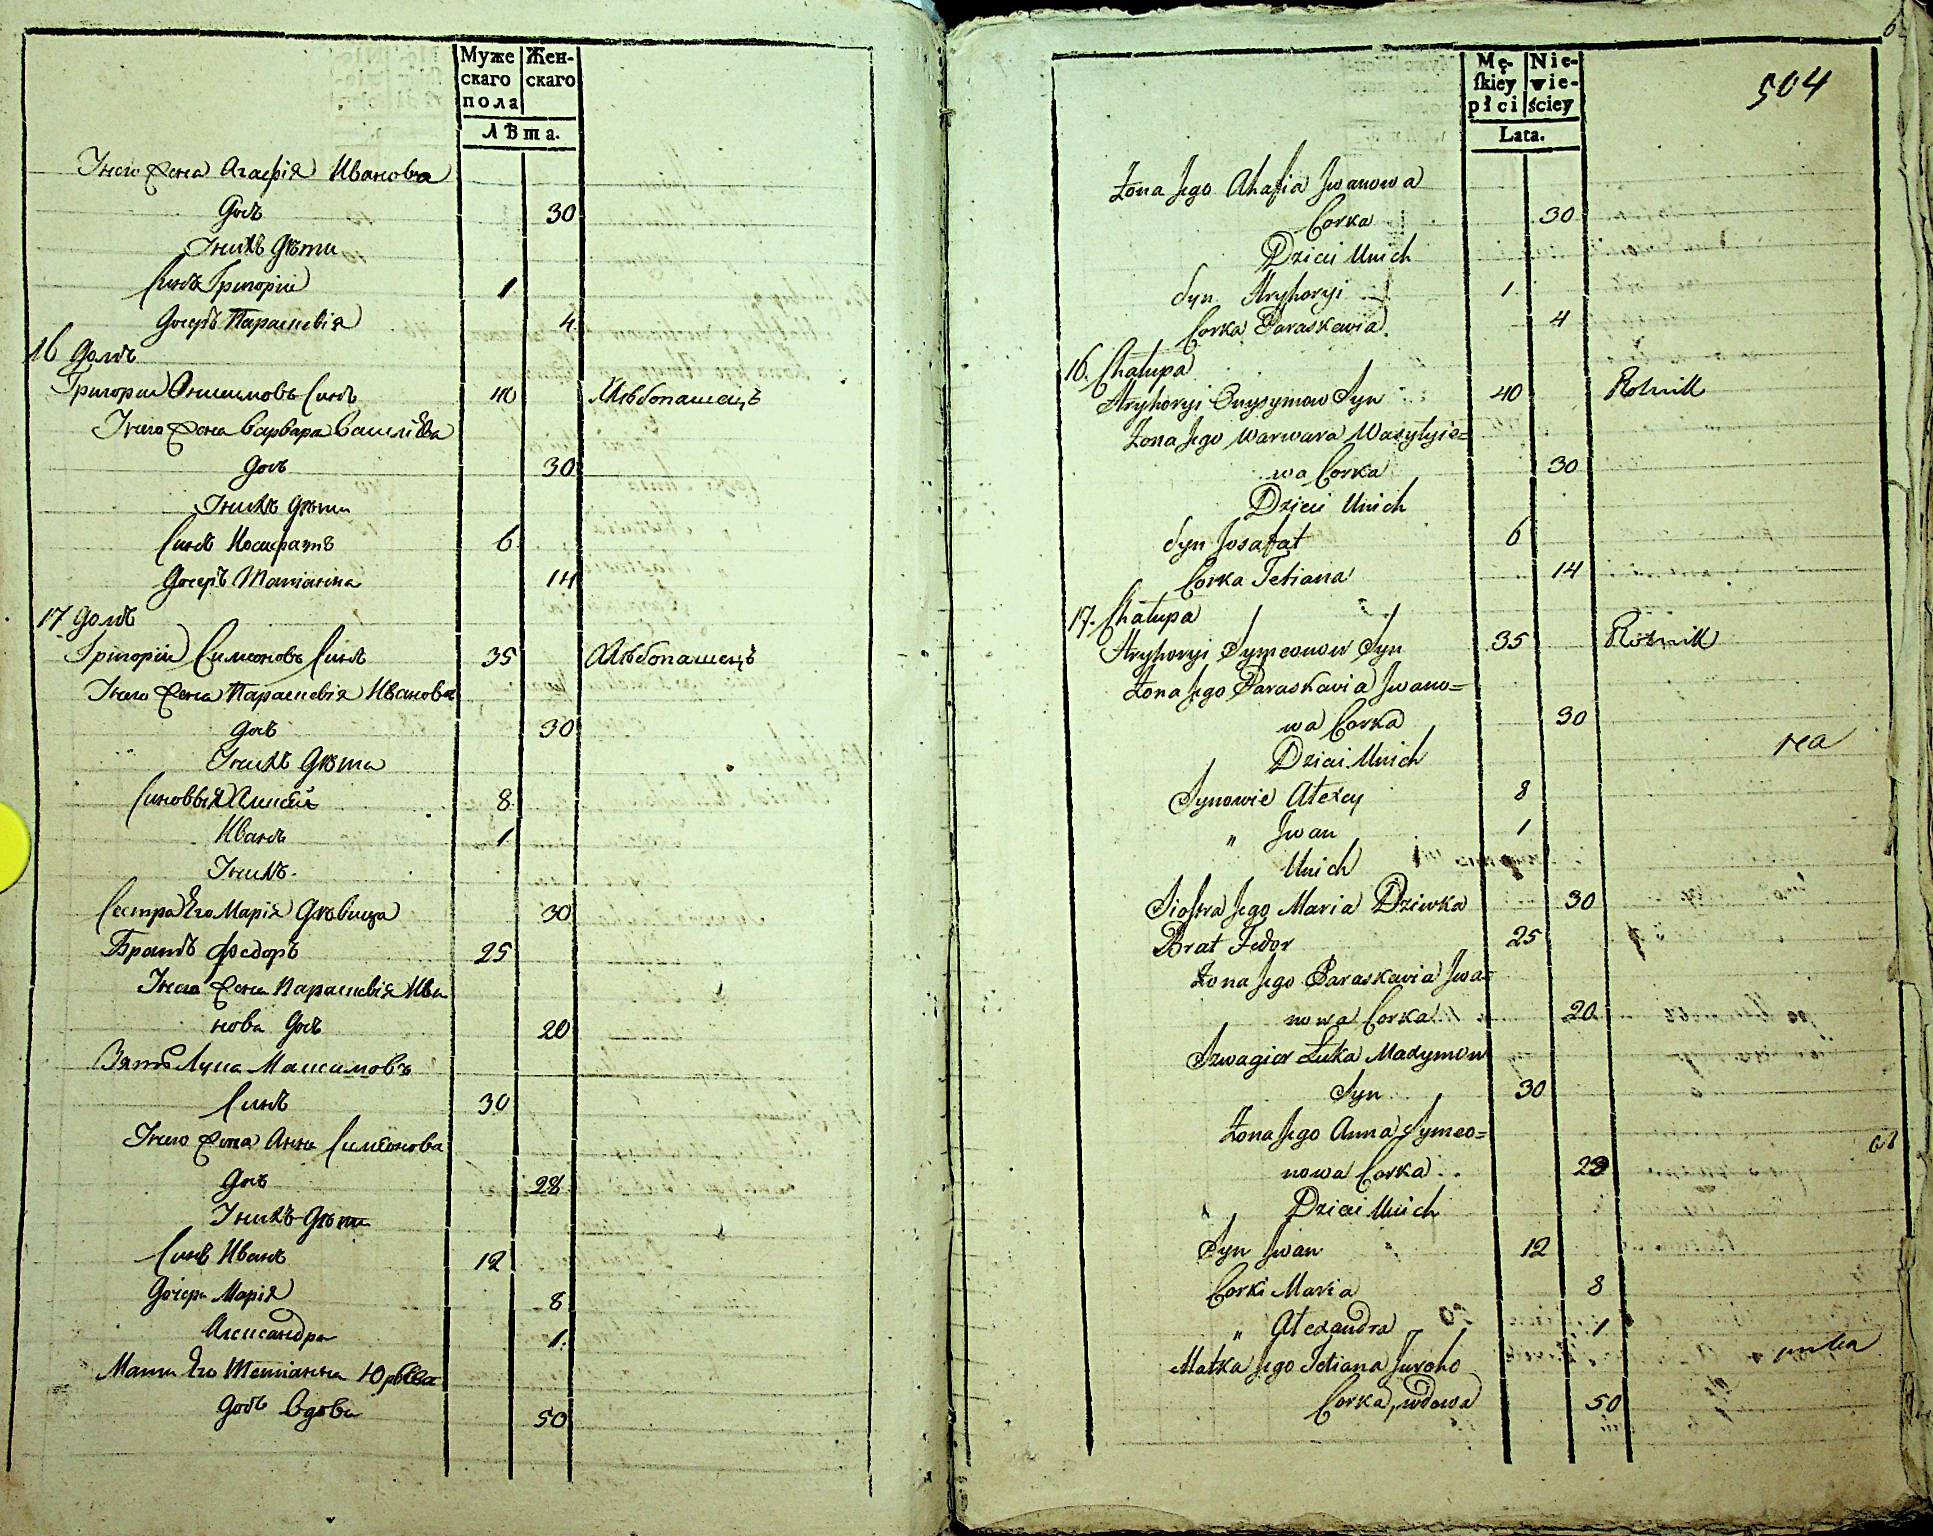 Муже Жен-
скаго скаго
пола
Лѣта.
Унего Жена Агафія Иванова
Дочь 30
Унихъ Дѣти
Синъ Григорій 1
Дочерь Параскевія 4
16 Домъ
Григорій Онисимовъ Синъ 40 Хлѣбопашецъ
Унего Жена Варвара Василіева
Дочь 30
Унихъ Дѣти
Синъ Иосифатъ 6
Дочерь Татіанна 14
17 Домъ
Григорій Симеоновъ Синъ 35 Хлѣбопашецъ
Унего Жена Параскевія Иванова
Дочь 30
Унихъ Дѣти
Синовья Алексій 8
Иванъ 1
Унихъ
Сестра Его Марія Дѣвица 30
Братъ Федоръ 25
Унего Жена Параскевія Ива
нова Дочь 20
Зять Лука Максимовъ
Синъ 30
Унего Жена Анна Симеонова
Дочь 28
Унихъ Дѣти
Синъ Иванъ 12
Дочери Марія 8
Александра 1
Мати Его Тетіанна Юрьева
Дочь Вдова 50
504
Mę- Nie-
skiey wie-
płci ściey
Lata.
Żona Jego Ahafia Jwanowa
Corka 30
Dzieci Unich
Syn Hryhoryi 1
Corka Paraskewia 4
16. Chałupa
Hryhoryi Onysymow Syn 40 Rolnik
Żona Jego Warwara Wasylyie=
wa Corka 30
Dzieci Unich
Syn Josafat 6
Corka Tetiana 14
17. Chałupa
Hryhoryi Symeonow Syn 35 Rolnik
Żona Jego Paraskavia Jwano=
wa Corka 30
Dzieci Unich
Synowie Alexcy 8
" Jwan 1
Unich
Siostra Jego Maria Dziewka 30
Brat Fedor 25
Żona Jego Paraskavia Jwa=
nowa Corka 20
Szwagier Łuka Maxymow
Syn 30
Żona Jego Anna Symeo=
nowa Corka 28
Dzieci Unich
Syn Jwan 12
Corki Maria 8
" Alexandra 1
Matka Jego Tetiana Juroho
Corka, wdowa 50